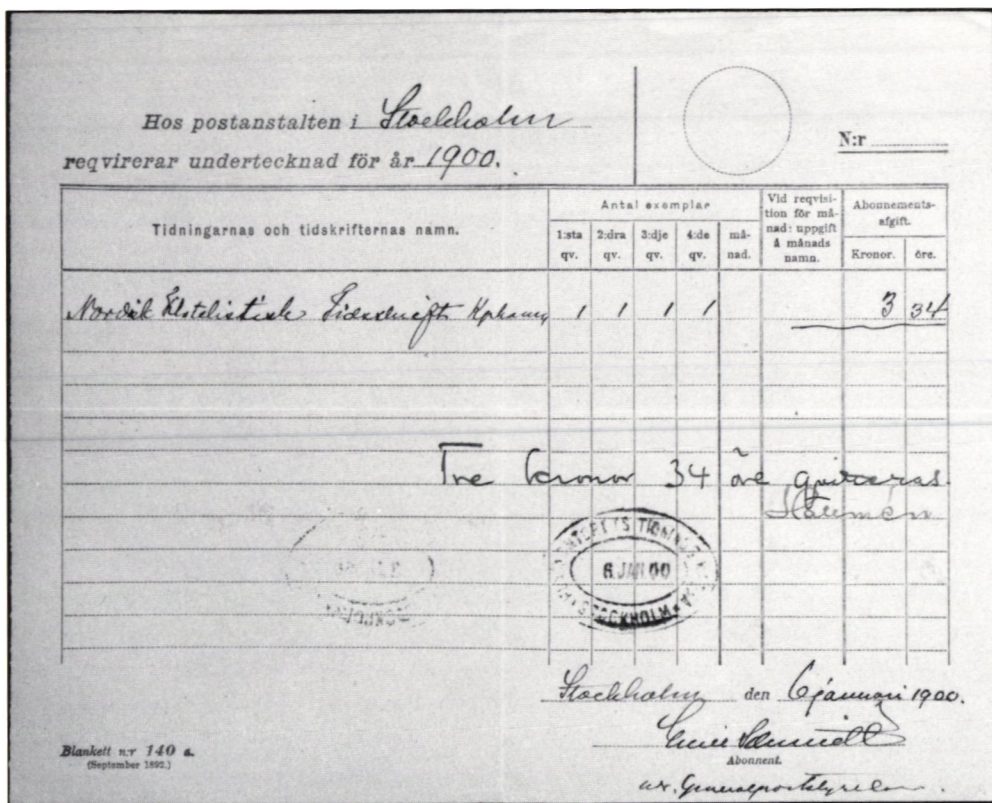 Hos postanstalten i Stockholm
reqvirerar undertecknad för år 1900.
N:r
Tidningarnas och tidskrifternas namn.
Antal exemplar
1:sta qv.
2:dra qv.
3:dje qv.
4:de qv.
må-
nad.
Vid reqvisi-
tion för må-
nad: uppgift
å månads
namn.
Abonnements-
afgift.
Kronor. öre.
Nordisk Filatelistisk Tidsskrift 1 1 1 1 3 34
Tre kronor 34 öre qvitteras
6 JAN 00
STOCKHOLM
Stockholm den 6 januari 1900.
Abonnent.
Blankett n:r 140 a.
(September 1892.)